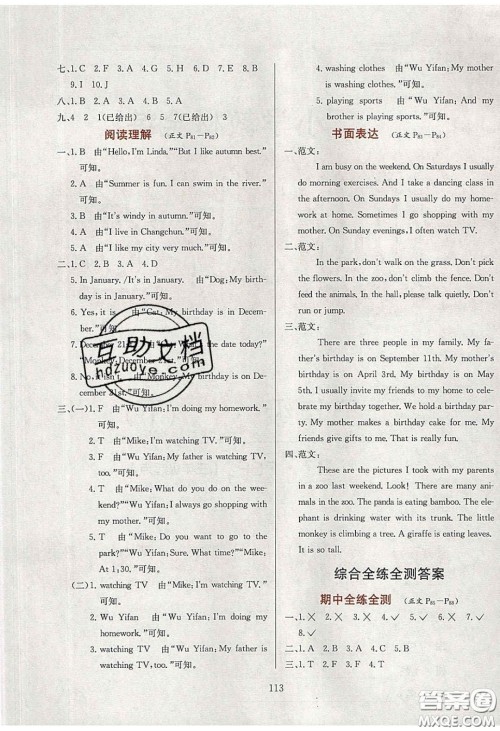 七、1. C 2. F 3. A 4. G 5. B 6. H 7. D 8. E
9. I 10. J
八、1. B 2. A 3. C 4. A 5. B
九、4 2 1(已给出) 6 5 7(已给出) 3
阅读理解 (正文 P81－P82)
一、1. B 由“Hello, I'm Linda.”“But I like autumn best.”
可知。
2. A 由“Summer is fun. I can swim in the river.”
可知。
3. B 由“It's windy in autumn.”可知。
4. B 由“I live in Changchun.”可知。
5. A 由“I like my city very much.”可知。
二、1. C 2. B 3. A 4. D
5. In January. /It's in January. 由“Dog: My birth-
day is in January.”可知。
6. Yes, it is 由“Cat: My birthday is in Decem-
ber.”可知。
7. December 21st. the date today?”
“Monkey: December 21st.”可知。
8. No, isn't My birthday is on
December 21st.”可知。
三、(一)1. F 由“Wu Yifan: I'm doing my homework.”
可知。
2. T 由“Mike: I'm watching TV.”可知。
3. F 由“Wu Yifan: My father is watching
TV, too.”可知。
4. T 由“Mike: What do you do on the week-
end?”“Wu Yifan: I always go shopping with
my mother.”可知。
5. T 由“Mike: Do you want to go to the
park?”“Wu Yifan: Sure. What time?”“Mike:
At 1:30.”可知。
(二)1. watching TV 由“Mike: I'm watching TV.”
可知。
2. Wu Yifan 由“Wu Yifan: I'm doing my
homework.”可知。
3. watching TV 由“Wu Yifan: My father is
watching TV, too.”可知。
4. washing clothes 由“Wu Yifan: My mother
is washing clothes.”可知。
5. playing sports 由“Wu Yifan: And my
brother is playing sports.”可知。
书面表达 (正文 P83－P84)
一、范文：
I am busy on the weekend. On Saturdays I usually
do morning exercises. And I take a dancing class in
the afternoon. On Sundays I usually do my home-
work at home. Sometimes I go shopping with my
mother. On Sunday evenings, I often watch TV.
二、范文：
In the park, don't walk on the grass. Don't pick
the flowers. In the zoo, don't climb the fence. Don't feed
the animals. In the library, please talk quietly. Don't
run or jump.
三、范文：
There are three people in my family. My father's
birthday is on September 11th. My mother's birth-
day is on April 3rd. My birthday is on May
5th. I usually invite my friends to my home to cele-
brate our birthdays together. We hold a birthday
party. And my mother makes a birthday cake for me.
My friends give gifts to me. That is really fun.
四、范文：
These are the pictures I took with my parents
in a zoo last weekend. Look! There are many animals
in the zoo. The panda is eating bamboo. The ele-
phant is drinking water with its trunk. The little
monkey is climbing a tree. A giraffe is eating leaves.
It is so tall.
综合全练全测答案
期中全练全测 (正文 P85－P88)
一、1. × 2. × 3. ✓ 4. × 5. ✓ 6. × 7. ✓
8. ✓
二、1. A 2. B 3. A 4. B 5. A
三、1. T 2. F 3. F 4. T
113
互助文档
hdzuoye.com
答案圈
MXQE.COM